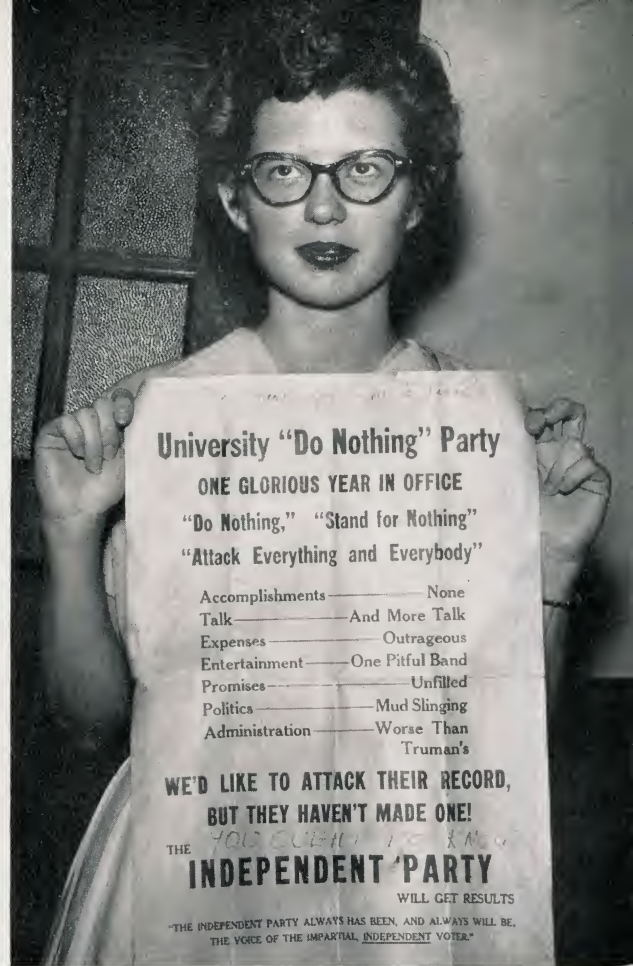 University "Do Nothing" Party
ONE GLORIOUS YEAR IN OFFICE
"Do Nothing," "Stand for Nothing"
"Attack Everything and Everybody"
Accomplishments — None
Talk — And More Talk
Expenses — Outrageous
Entertainment — One Pitful Band
Promises — Unfilled
Politics — Mud Slinging
Administration — Worse Than
Truman's
WE'D LIKE TO ATTACK THEIR RECORD,
BUT THEY HAVEN'T MADE ONE!
YOU OUGHT TO KNOW
THE
INDEPENDENT 'PARTY
WILL GET RESULTS
"THE INDEPENDENT PARTY ALWAYS HAS BEEN, AND ALWAYS WILL BE,
THE VOICE OF THE IMPARTIAL, INDEPENDENT VOTER."